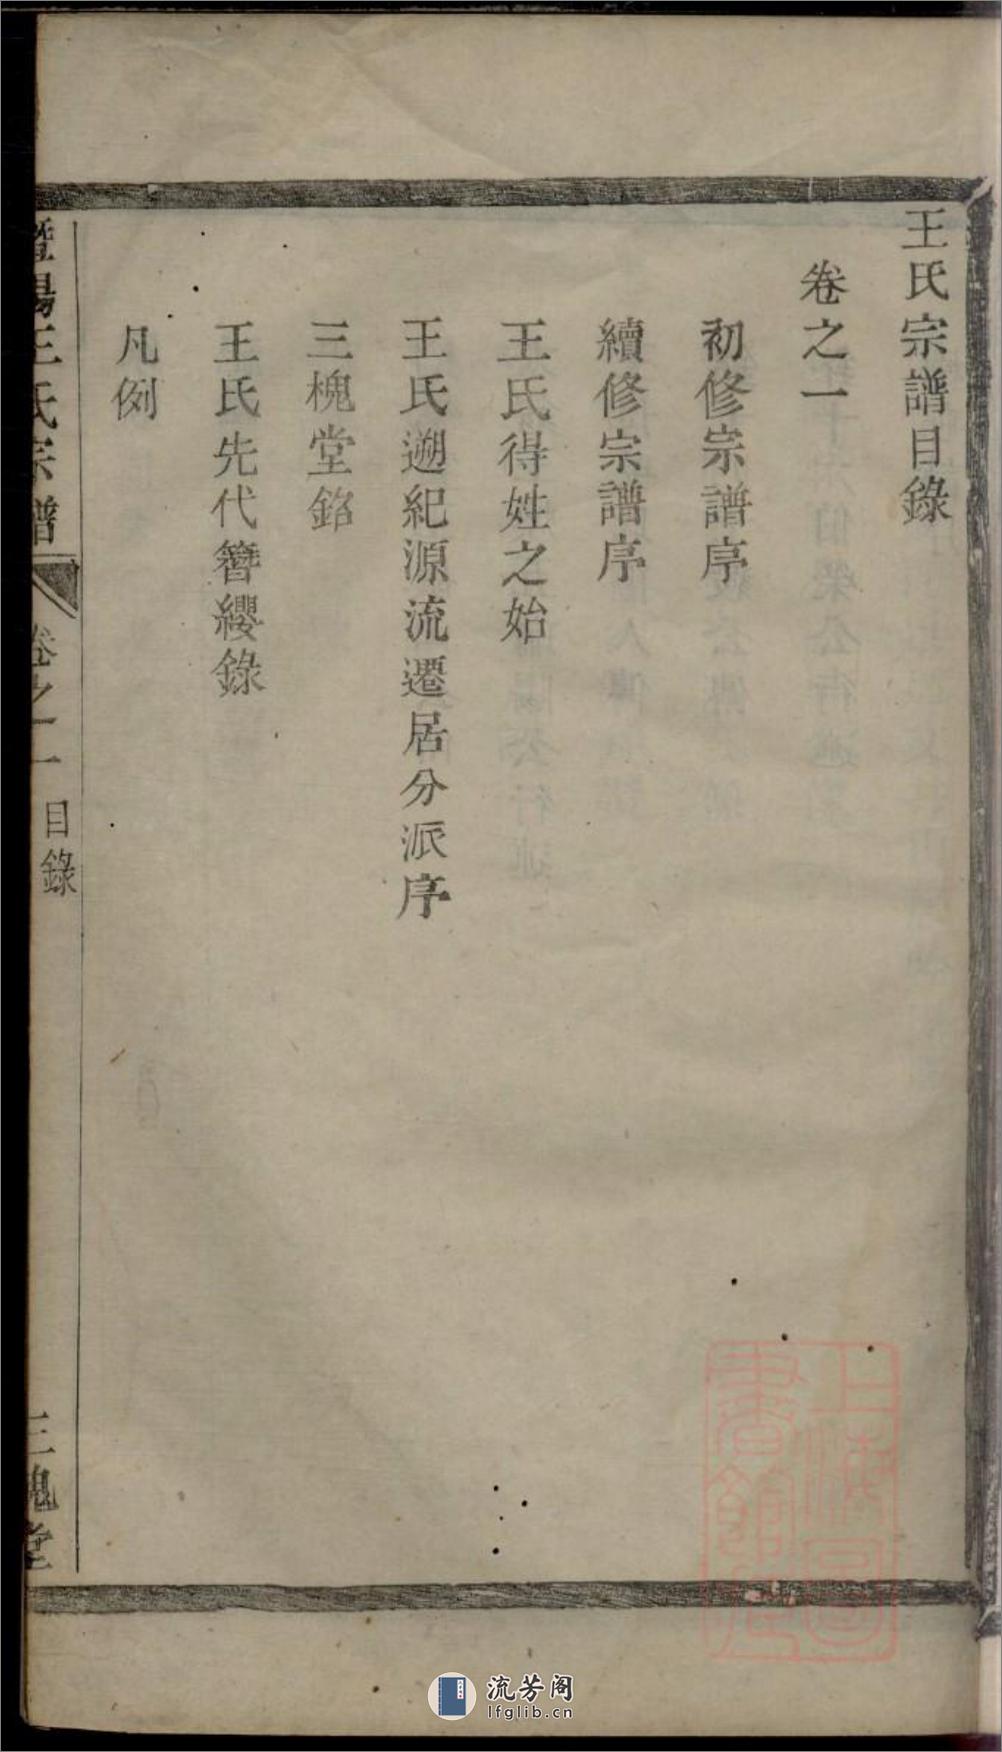 王氏宗譜目錄
卷之一
初修宗譜序
續修宗譜序
王氏得姓之始
王氏遡紀源流遷居分派序
三槐堂銘
王氏先代簪纓錄
凡例
暨陽王氏宗譜
卷之一
目錄
三槐堂
上海圖
書館藏
流芳阁
lfglib.cn